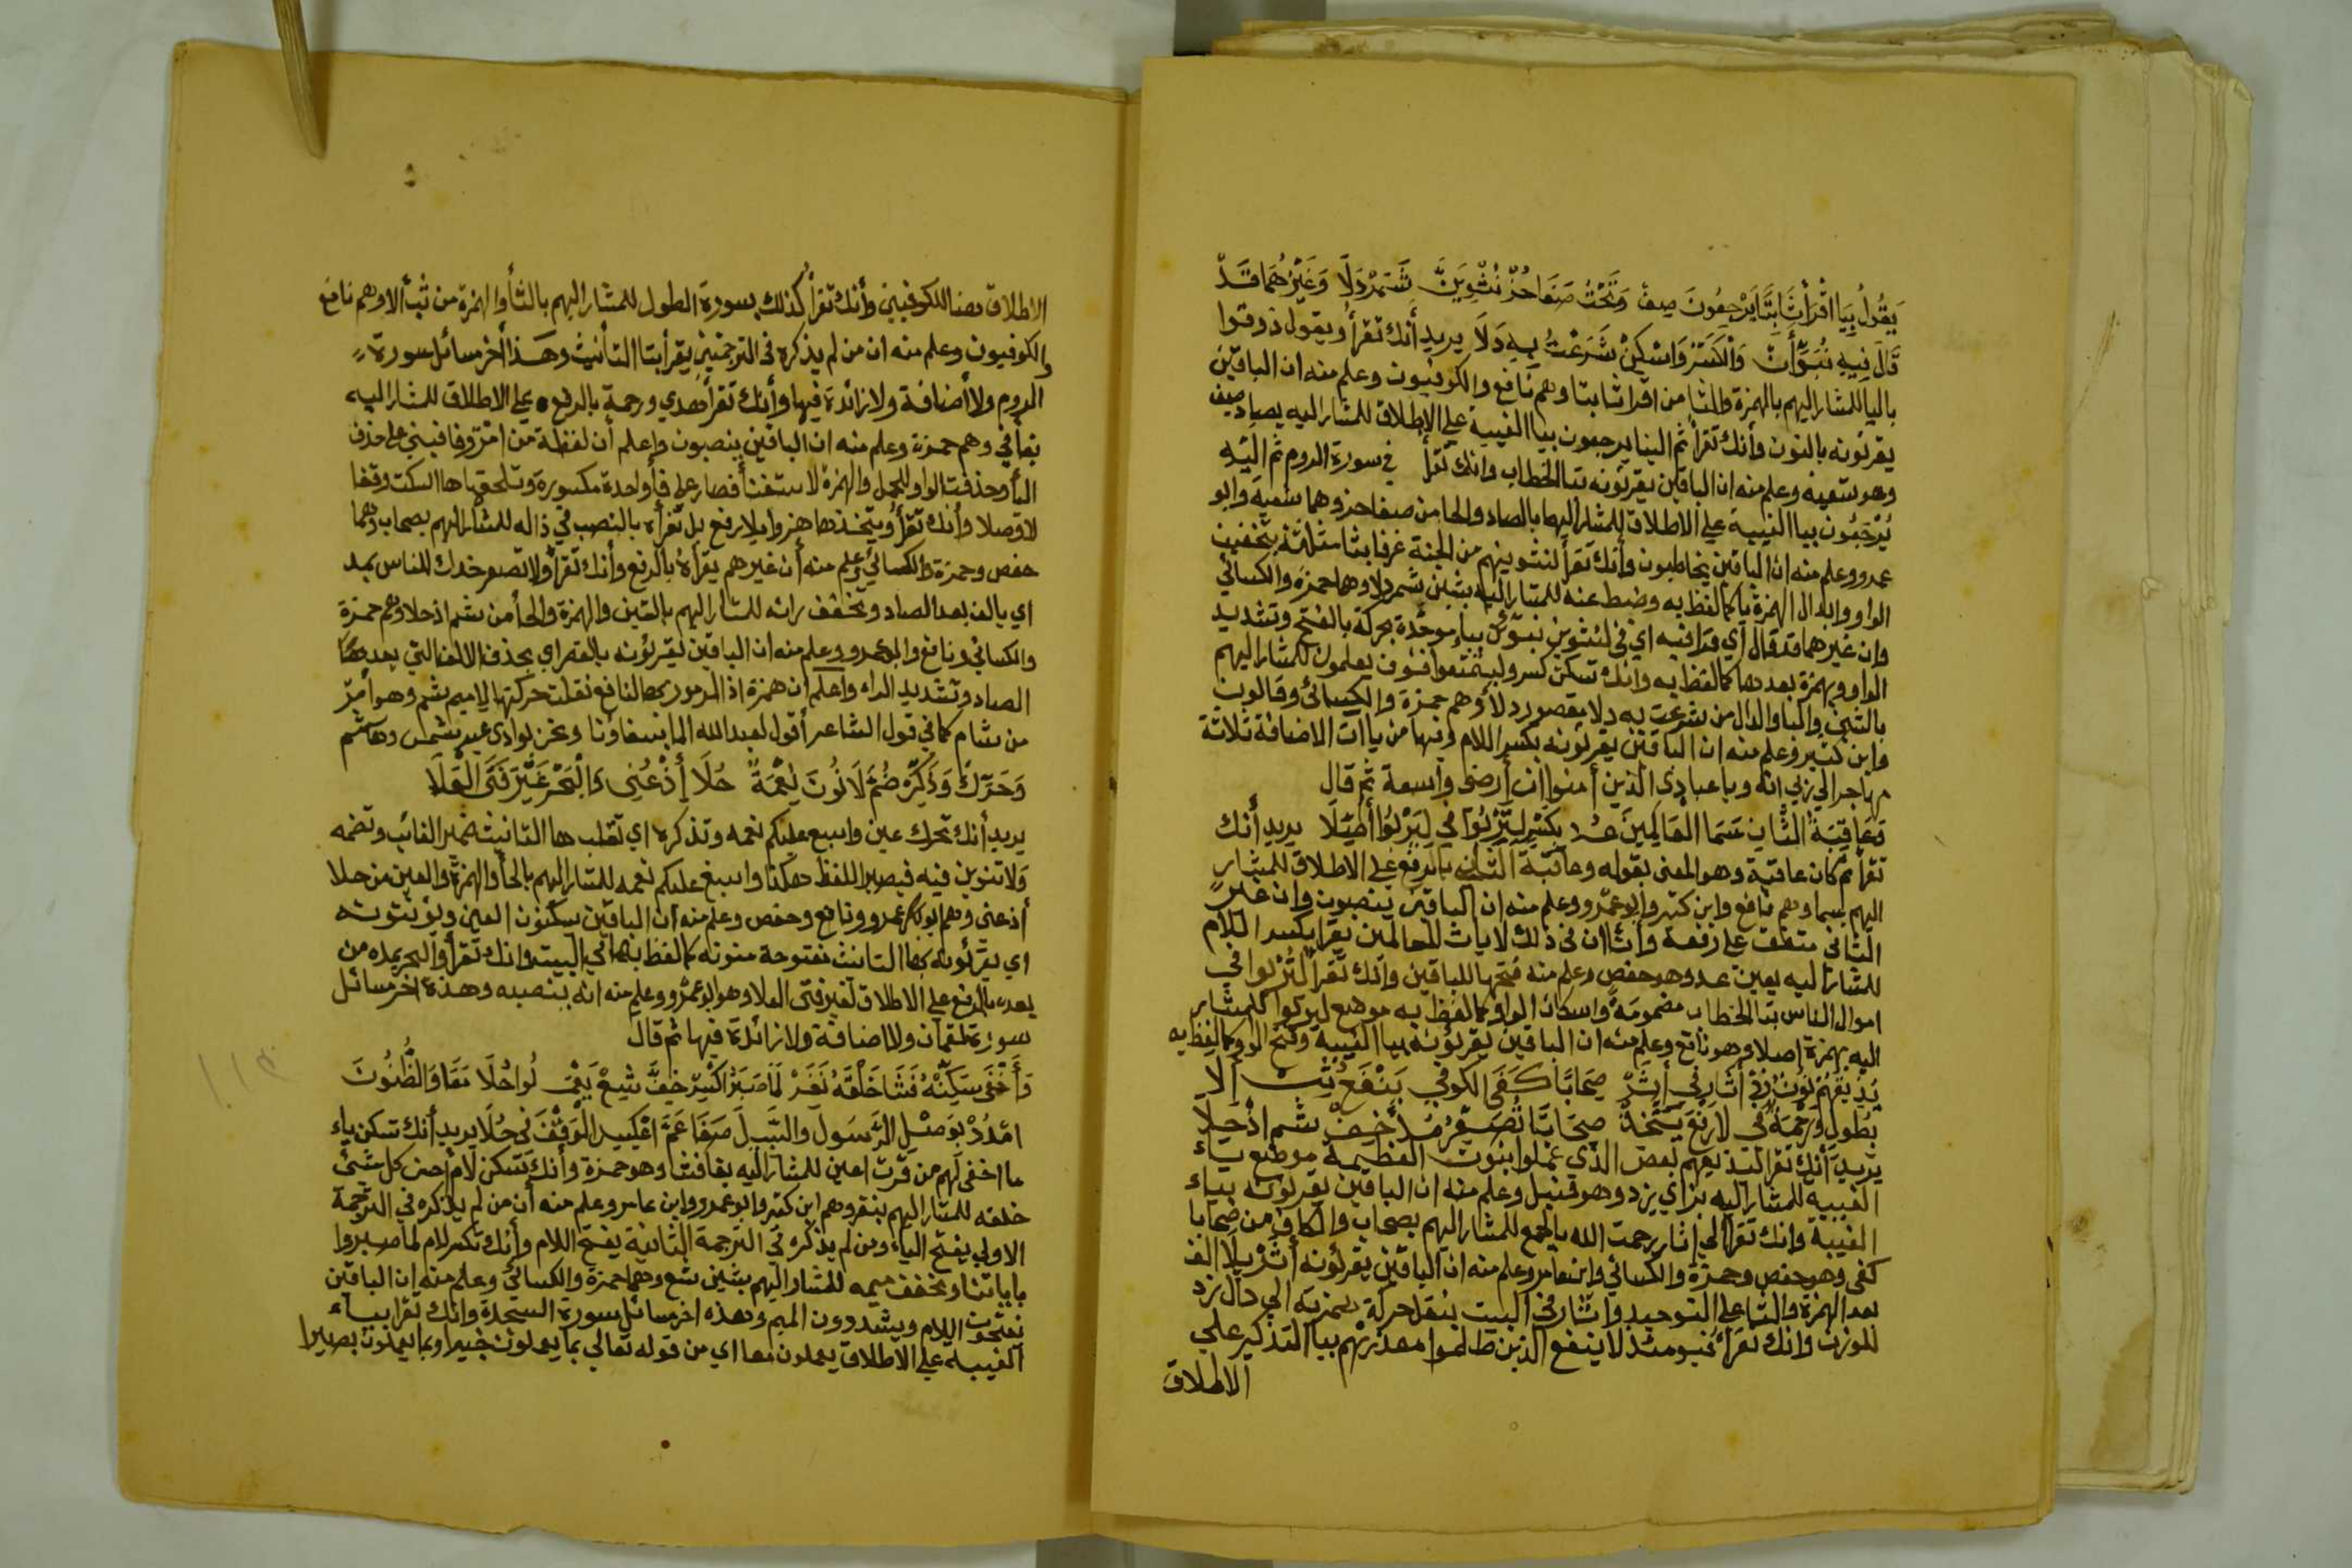 يَقُولُ بِيَا اقْرَأْ ثَابِتًا يَرْجِعُونَ صِفْ وَتَحْتُ صَفَا حُزْ نُثْوِيَنَّ شَمَرْدَلَا وَغَيْرُهُمَا قَدْ
قَالَ فِيهِ نُبَوِّأَنْ وَالْكَسْرُ وَاسْكِنْ شَرَعْتُ بِهِ دَلَا يريد أنك تقرأ ويقول ذوقوا
باليا للمشار اليهم بالهمزة والثا من اقرا ثابتا وهم نافع والكوفيون وعلم منه ان الباقين
يقرئونه بالنون وأنك تقرأ ثم الينا يرجعون بيا الغيبة على الاطلاق للمشار اليه بصاد صف
وهو شعبه وعلم منه ان الباقين يقرئونه بتا الخطاب وانك تقرأ في سورة الروم ثم اليه
يُرْجَعُون بيا الغيبة على الاطلاق للمشار اليهما بالصاد والحا من صفا حز وهما شعبة وابو
عمرو وعلم منه ان الباقين يخاطبون وأنك تقرأ لنثوينهم من الجنة غرفا بثا مثلثة بتخفيف
الواو وابدال الهمزة ياء كما لفظ به وضبط عنه للمشار اليه بشين شمردلا وهما حمزة والكسائي
وان غيرهما قد قال أي قرا فيه اي في لنثوين نبوئ بباء موحدة بحركة بالفتح وتشديد
الواو وبهمزة بعدها كما لفظ به وانك تسكن كسر وليتمتعوا فسوف يعلمون للمشار اليهم
بالشين والبا والدال من شرعت به دلا بقصور دلا وهم حمزة والكسائي وقالون
وابن كثير وعلم منه ان الباقين يقرئونه بكسر اللام وفيها من ياات الاضافة ثلاثة
مهاجر الي ربي انه ويا عبادي الذين أمنوا ان أرضي واسعة ثم قال
وَعَاقِبَةُ الثَّانِ سَمَا الْعَالِمِينَ عُدْ بِكَسْرٍ لِتُرْبُوا فِي لِيَرْبُوا أُصِّلَا يريد أنك
تقرأ ثم كان عاقبة وهو المعنى بقوله وعاقبة الثان بالرفع على الاطلاق للمشار
اليهم بسما وهم نافع وابن كثير وابو عمرو وعلم منه ان الباقين ينصبون وان غير
الثاني متفق على رفعه وأنك ان في ذلك لايات للعالمين تقرا بكسر اللام
للمشار اليه بعين عد وهو حفص وعلم منه فتحها للباقين وأنك تقرأ لتُرْبوا في
اموال الناس بتا الخطاب مضمومة واسكان الواو كما لفظ به موضع ليربوا للمشار
اليه بهمزة اصلا وهو نافع وعلم منه ان الباقين يقرئونه بيا الغيبة وفتح الواو كما لفظ به
يُذِيقَهُمْ نُونٌ زِدْ فِي أَثَارِ فِي أَثَرْ صِحَابًا كَفَى الْكُوفِي بَيَنْفَعُ ثِبْ أَلَا
بِطُولٍ وَرَحْمَةٌ فِي لَارَفْعَ يَتَّخِذْ صِحَابًا تُصَعِّرْ مُدَّ خَفِّفْ شُمْ اذْحَلَا
يريد أنك تقرا ليذيقهم بعض الذي عملوا بنون العظيمة موضع ياء
الغيبيه للمشار اليه بزاي يزد وهو قنبل وعلم منه ان الباقين يقرئونه بياء
الغيبة وانك تقرأ الي اثار رحمت الله بالجمع للمشار اليهم بصحاب والكاف من صحابا
كفى وهو حفص وحمزة والكسائي وابن عامر وعلم منه ان الباقين يقرئونه أثر بلا الف
بعد الهمزة والثا على التوحيد واثار في البيت بنقل حركة همزته الى دال زد
للوزن وانك تقرأ فيومئذ لا ينفع الذين ظلموا معذرتهم بيا التذكير على
الاطلاق
الاطلاق هنا للكوفيين وأنك تقرأ كذلك بسورة الطول للمشار اليهم بالثا والهمزة من ثب ألا وهم نافع
والكوفيون وعلم منه ان من لم يذكره في الترجمتين يقرأ بتا التأنيث وهذا أخر مسائل سورة
الروم ولا أضافة ولا زائدة فيها وأنك تقرأ هدي ورحمة بالرفع على الاطلاق للمشار اليه
بفأ في وهم حمزة وعلم منه ان الباقين ينصبون واعلم أن لفظة من
اليأ وحذفت الواو للجمل والهمزة لا ستغنأ فصار على فأ واحدة مكسورة وتلحقها ها السكت وقفا
لا وصلا وأنك تقرأ ويتخذها هزوا بلا رفع بل تقرأه بالنصب في ذاله للمشار اليهم بصحاب وهما
حفص وحمزة والكسائي وعلم منه أن غيرهم يقرأه بالرفع وأنك تقرأ ولا تصعر خدك للناس بمد
اي بالف بعد الصاد وتخفف رائه للمشار اليهم بالشين والهمزة والحأ من شم اذ حلا وهم حمزة
والكسائي ونافع وابو عمرو وعلم منه ان الباقين يقرئونه بالقصر اي بحذف الالف التي بعدها
الصاد وتشديد الراء واعلم ان همزة اذ المرموز بها لنافع نقلت حركتها الي ميم شم وهو أمر
من شام كما في قول الشاعر أقول لعبدالله لما سقاؤنا ونحن بوادي عبد شمس وهاشم
وَحَرِّكْ وَذَكِّرْ ضُمَّ لَا نُونَ نِعْمَةً حُلَا إِذْ عُنِي وَالْبَحْرُ غَيْرَ فَتَى الْعَلَا
يريد أنك تحرك عين واسبغ عليكم نعمه وتذكره اي تقلب ها التانيث ضمير الغائب وتضمه
ولا تنوين فيه فيصير اللفظ هكذا واسبغ عليكم نعمه للمشار اليهم بالحأ والهمزة والعين من حلا
أذ عنى وهم ابو عمرو ونافع وحفص وعلم منه أن الباقين يسكنون العين ويؤنثونه
اي يقرئونه بها التانيث مفتوحة منونه كما لفظ بها في البيت وانك تقرأ والبحر يمده من
بعده بالرفع على الاطلاق لغير فتى العلا وهو ابو عمرو وعلم منه انه ينصبه وهذه اخر مسائل
سورة لقمان ولا اضافة ولا زائدة فيها ثم قال
وَأُخْفِي سَكِّنْهُ فَشَا خَلْقَهُ نَفَرْ لَمَا صَبَرُوا اكْسِرْ خِفَّ شِعْ يَعْمَلُوا حُلَا مَعًا وَالظُّنُونَ
امْدُدْ بِوَصْلِ الرَّسُولَ وَالسَّبِيلَ صَفَا عَمَّ اعْكِسِ الْوَقْفَ فِي حُلَا يريد أنك تسكن ياء
ما اخفى لهم من قرت اعين للمشار اليه بفا فشا وهو حمزة وأنك تسكن لام احسن كل شئ
خلقه للمشار اليهم بنفر وهم ابن كثير وابو عمرو وابن عامر وعلم منه أن من لم يذكره في الترجمة
الاولي يفتح الياء ومن لم يذكره في الترجمة الثانية يفتح اللام وأنك تكسر لام لما صبروا
باياتنا وتخفف ميمه للمشار اليهم بشين شع وهما حمزة والكسائي وعلم منه ان الباقين
يفتحون اللام ويشددون الميم وهذه اخر مسائل سورة السجدة وانك تقرا بياء
الغيبه على الاطلاق يعملون معا اي من قوله تعالي بما يعملون خبيرا وبما يعملون بصيرا